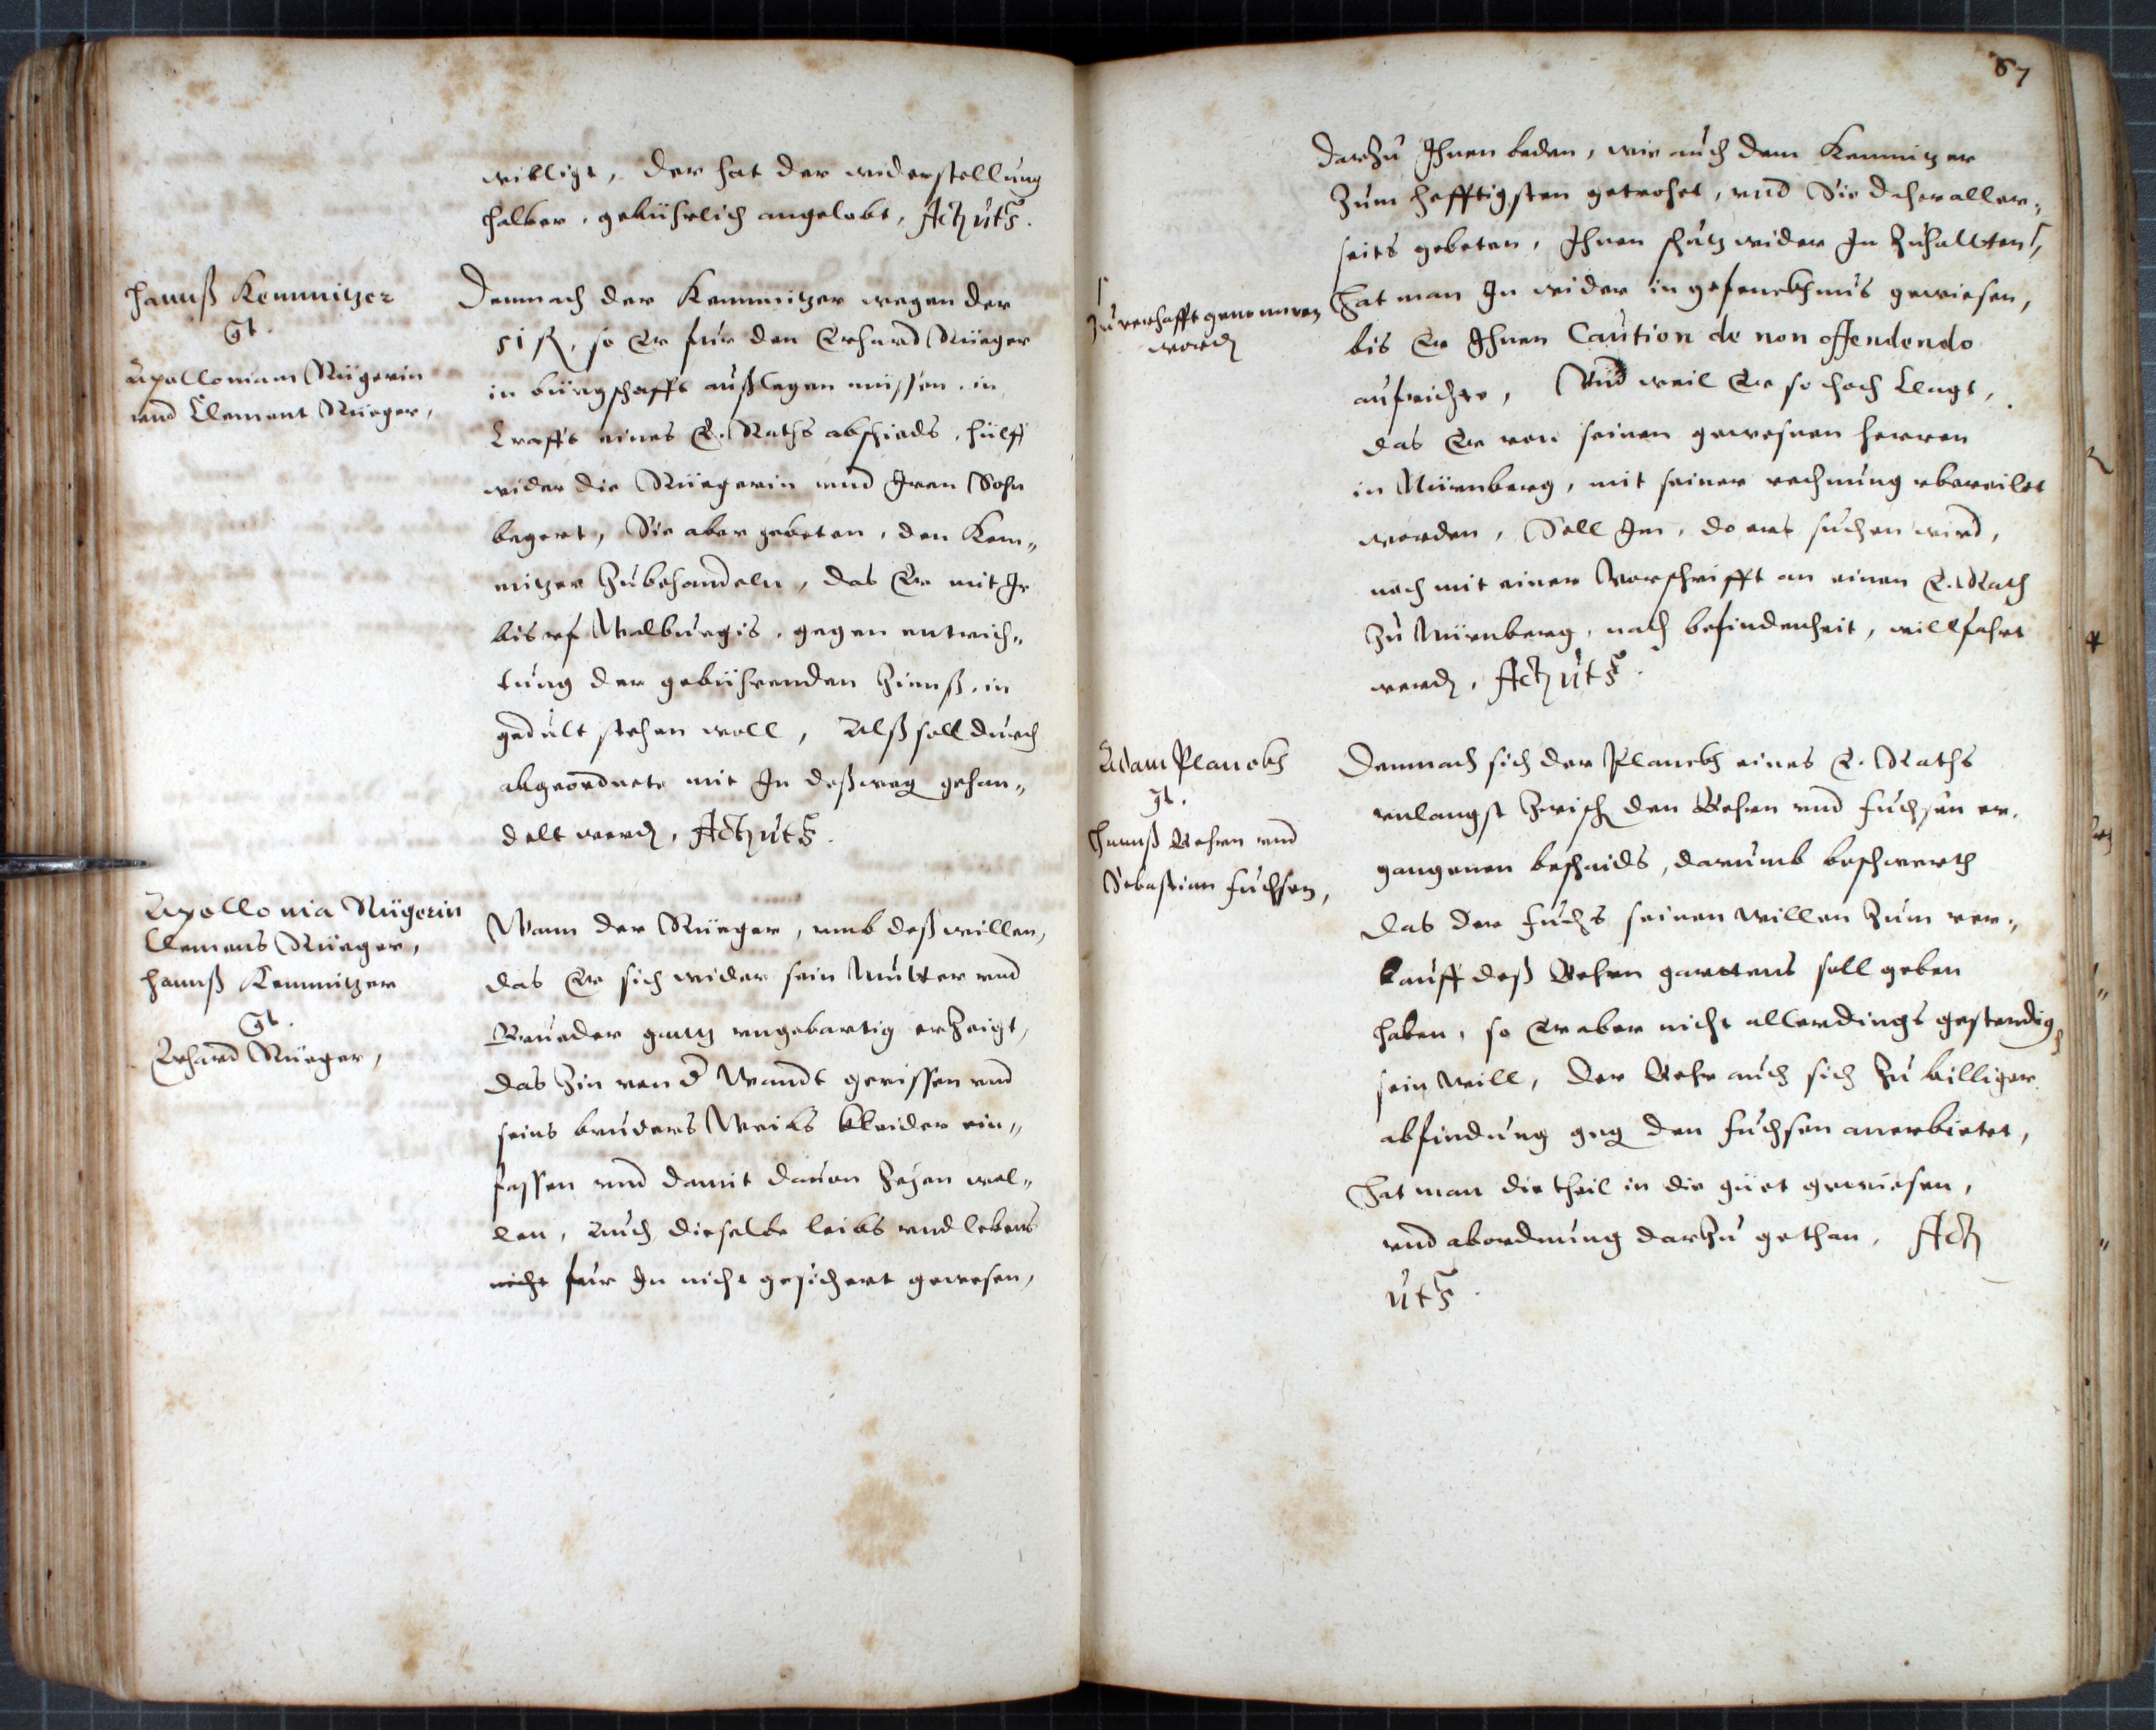 willigt, der hat der widerstellung
halber, gebührlich angelobt, Actz uts.
Hannß Kemnitzer
Gt.
Apolloniam Rügerin
vnd Clement Rüeger,
Demnach der Kemmnitzer wegen der
51 R, so Er für den Erhard Rüeger
in bürgschafft außlegen müssen, in
krafft eines E. Raths abschieds, hülff
wider die Rüegerin vnd Iren Sohn
begert, Sie aber gebeten, den Kem„
nitzer zubehandeln, das Er mit Ir
bis vf Walburgis, gegen entrich„
tung der gebührenden Zinnß, in
gedult stehen woll, Alß soll durch
abgeordnete mit Im deßweg gehan„
delt werd, Actz uts.
Apollonia Rügerin
Clemens Rüeger,
Hannß Kemmitzer
Gt.
Erhard Rüeger,
Wann der Rüeger, vmb deß willen,
das Er sich wider sein Mutter vnd
Brueder gantz vngebartig erzeigt,
das Zin von d Wandt gerissen vnd
seins bruders Weibs kleider ein„
fassen vnd damit dauon Zihen wol„
len, Auch dieselbe leibs vnd lebens
nicht für Im nicht gesichert gewesen,
67
darzu Ihnen beden, wie auch dem Kemnitzer
zum hefftigsten getrohet, vnd Sie daher aller„
seits gebeten, Ihnen schutz wider In zuhalten,
Zu verhafft genommen
word
Hat man In wider in gefenckhnus gewiesen,
bis Er Ihnen Caution de non offendendo
aufrichte, Vnd weil Er so hoch klagt,
das Er von seinen gewesnen herren
in Nürnberg, mit seiner rechnung vbereilet
worden, Soll Im, do ers suchen wird,
noch mit einer Vorschrifft an einen E. Rath
zu Nürnberg, nach befindenheit, willfahrt
werd, Actz uts.
Adam Planckh
gt.
Hannß Behrn vnd
Sebastian Fuchsen,
Demnach sich der Planckh eines E. Raths
vnlangst zwisch den Behrn vnd Fuchsen er„
gangenen bescheids, darumb beschwerth
das der Fuchs seinen willen zum ver„
kauff deß Behrn garttens soll geben
haben, so Er aber nicht allerdings gestendig
sein will, der Behr auch sich zu billiger
abfindung geg den Fuchsen anerbietet,
Hat man die theil in die güet gewiesen,
vnd abordnung darzu gethan, Actz
uts.